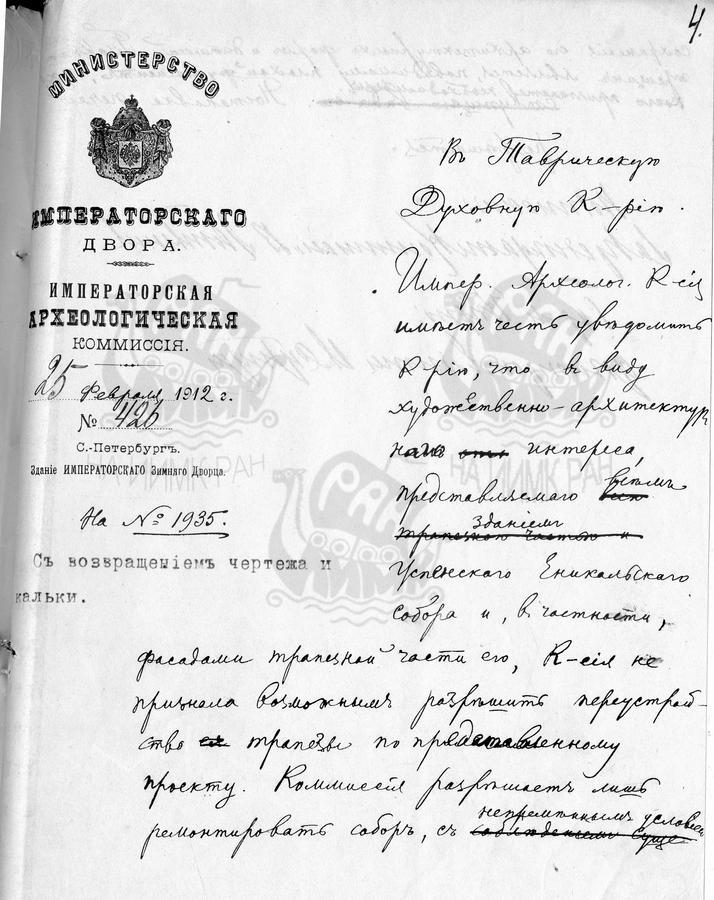 4.
МИНИСТЕРСТВО
ИМПЕРАТОРСКАГО
ДВОРА.
ИМПЕРАТОРСКАЯ
АРХЕОЛОГИЧЕСКАЯ
КОММИССІЯ.
25 Февраля 1912 г.
№ 426
С.-Петербургъ.
Зданіе ИМПЕРАТОРСКАГО Зимняго Дворца.
На № 1935.
Съ возвращеніемъ чертежа и
кальки.
Въ Таврическую
Духовную К-рію.
Импер. Археолог. К-сія
имѣетъ честь увѣдомить
К-рію, что въ виду
художественно-архитектур
наго интереса,
представляемаго всѣмъ
зданіемъ
трапезною частью и
Успенскаго Еникальскаго
собора и, въ частности,
фасадами трапезной части его, К-сія не
признала возможнымъ разрѣшить переустрой-
ство трапезы по представленному
проекту. Коммиссія разрѣшаетъ лишь
непремѣннымъ условіемъ
ремонтировать соборъ, съ соблюденіемъ суще
РАН
ИИМК
НА ИИМК РАН
НА ИИМК РАН